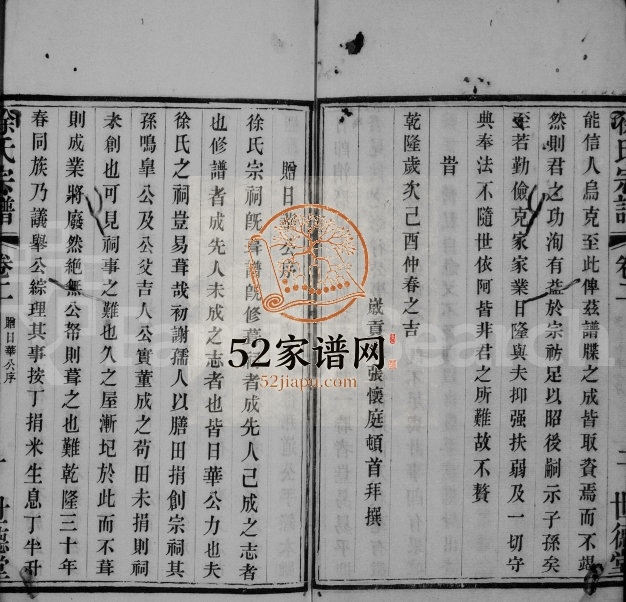 能信人烏克至此俾茲譜牒之成皆取資焉而不竭
然則君之功洵有益於宗祊足以昭後嗣示子孫矣
至若勤儉克家家業日隆與夫抑强扶弱及一切守
典奉法不隨世依阿皆非君之所難故不贅
旹
乾隆歲次己酉仲春之吉
歲貢張懷庭頓首拜撰
徐氏宗譜
卷二
二
世德堂
贈日華公序
徐氏宗祠旣葺譜旣修葺者成先人已成之志者
也修譜者成先人未成之志者也皆日華公力也夫
徐氏之祠豈易葺哉初謝孺人以膳田捐創宗祠其
孫鳴臯公及公父吉人公實董成之苟田未捐則祠
未創也可見祠事之難也久之屋漸圮於此而不葺
則成業將廢然絶無公帑則葺之也難乾隆三十年
春同族乃議舉公綜理其事按丁捐米生息丁半升
徐氏宗譜
卷二
贈日華公序
世德堂
52家谱网
52jiapu.com